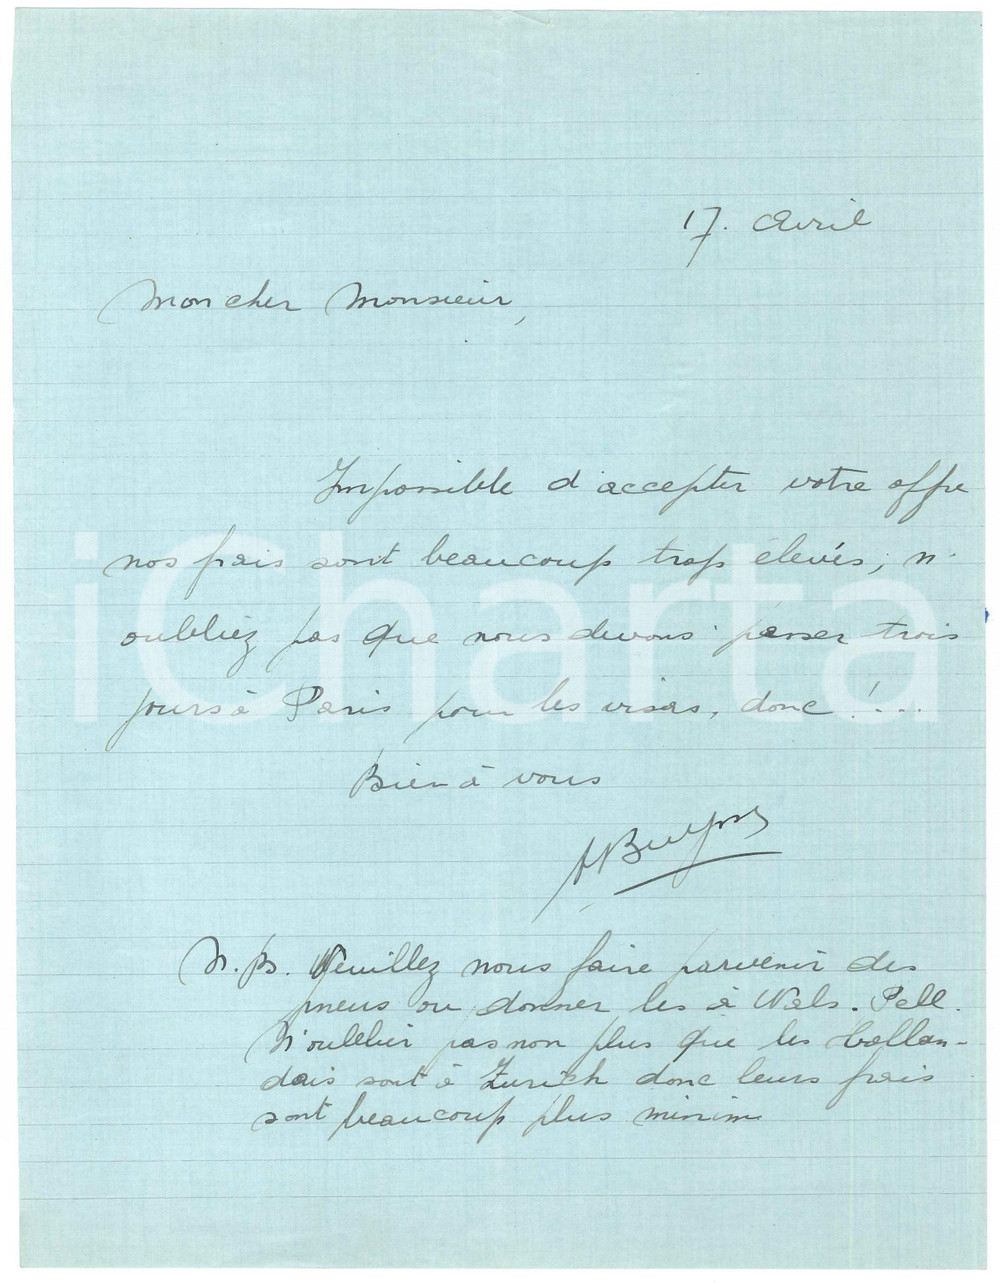 17. Avril
Mon cher Monsieur,
Impossible d'accepter votre offre
nos frais sont beaucoup trop élevés, n'
oubliez pas que nous devons passer trois
jours à Paris pour les visas, donc !...
Bien à vous
N.B. Veuillez nous faire parvenir des
pneus ou donner les à Wals. Pell.
N'oublier pas non plus que les hollan-
dais sont à Zurich donc leurs frais
sont beaucoup plus minim
iCharta